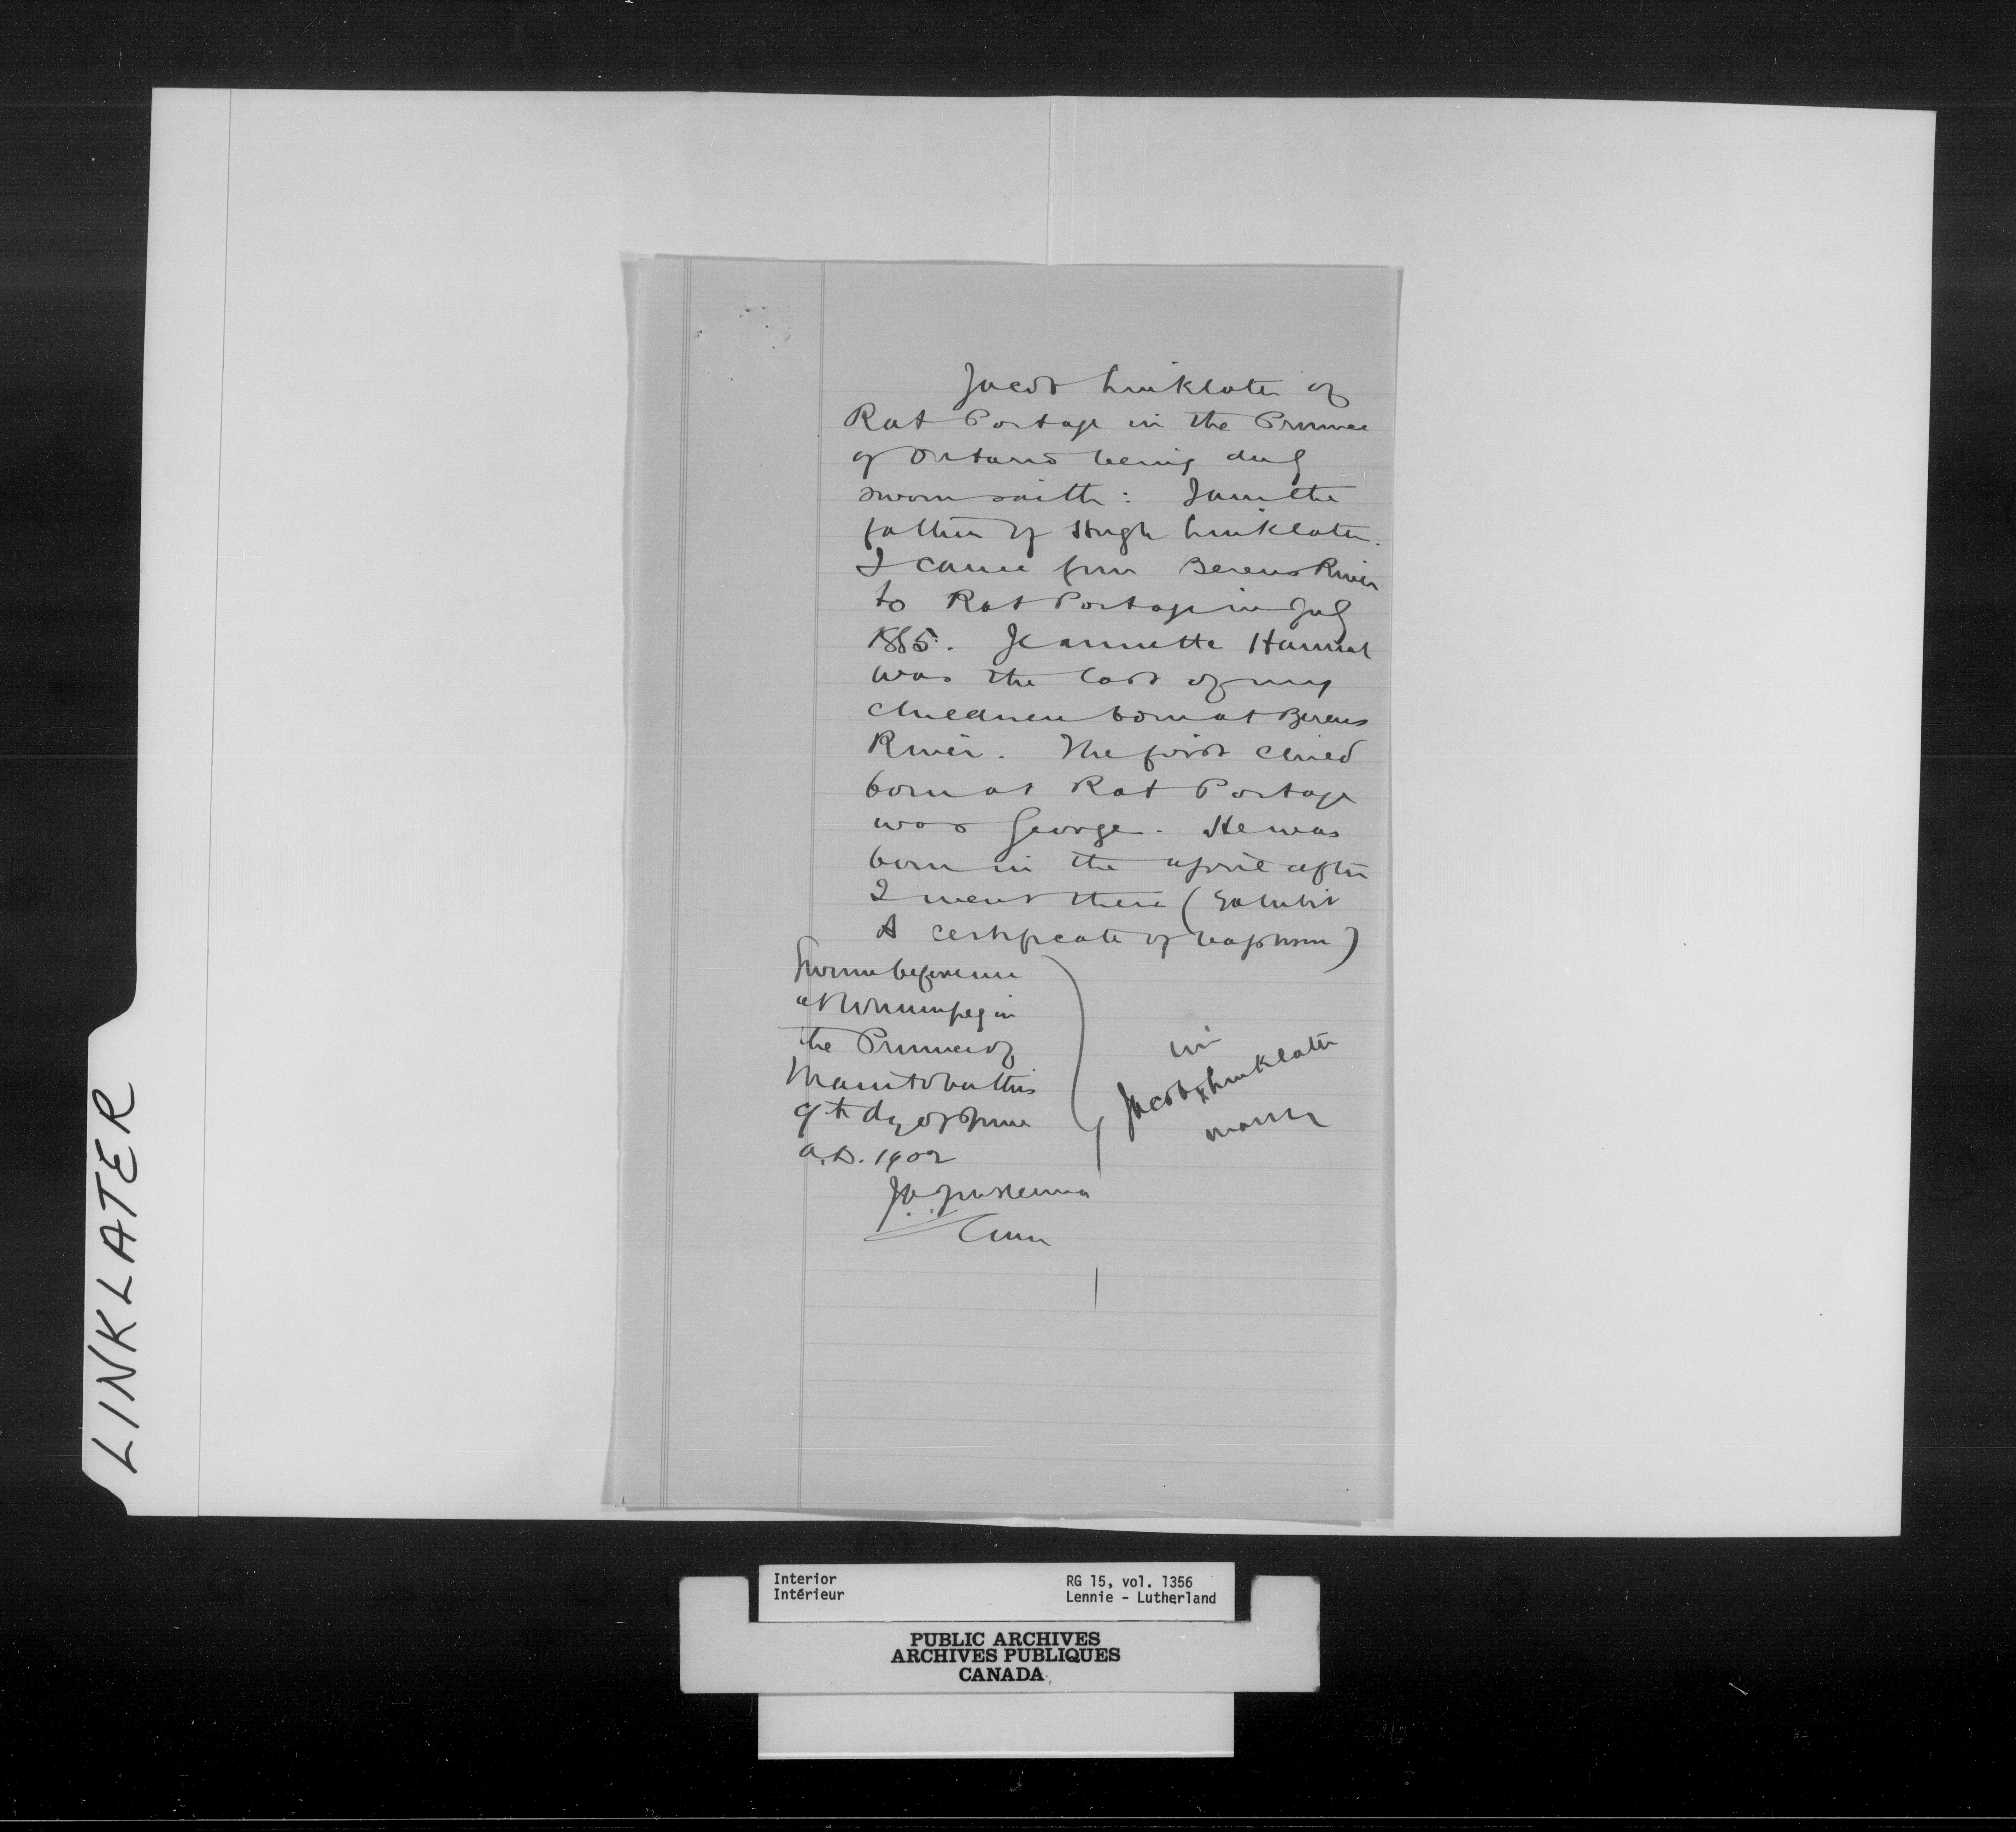 Jacob Linklater of
Rat Portage in the Province
of Ontario being duly
sworn saith: I am the
father of Hugh Linklater.
I came from Berens River
to Rat Portage in July
1885. Jeannette Hannah
was the last of my
children born at Berens
River. The first child
born at Rat Portage
was George. He was
born in the April after
I went there (Exhibit
A certificate of baptism)
Sworn before me
at Winnipeg in
the Province of
Manitoba this
9th day of June
A.D. 1902
his
Jacob x Linklater
mark
LINKLATER
Interior
Intérieur
RG 15, vol. 1356
Lennie - Lutherland
PUBLIC ARCHIVES
ARCHIVES PUBLIQUES
CANADA